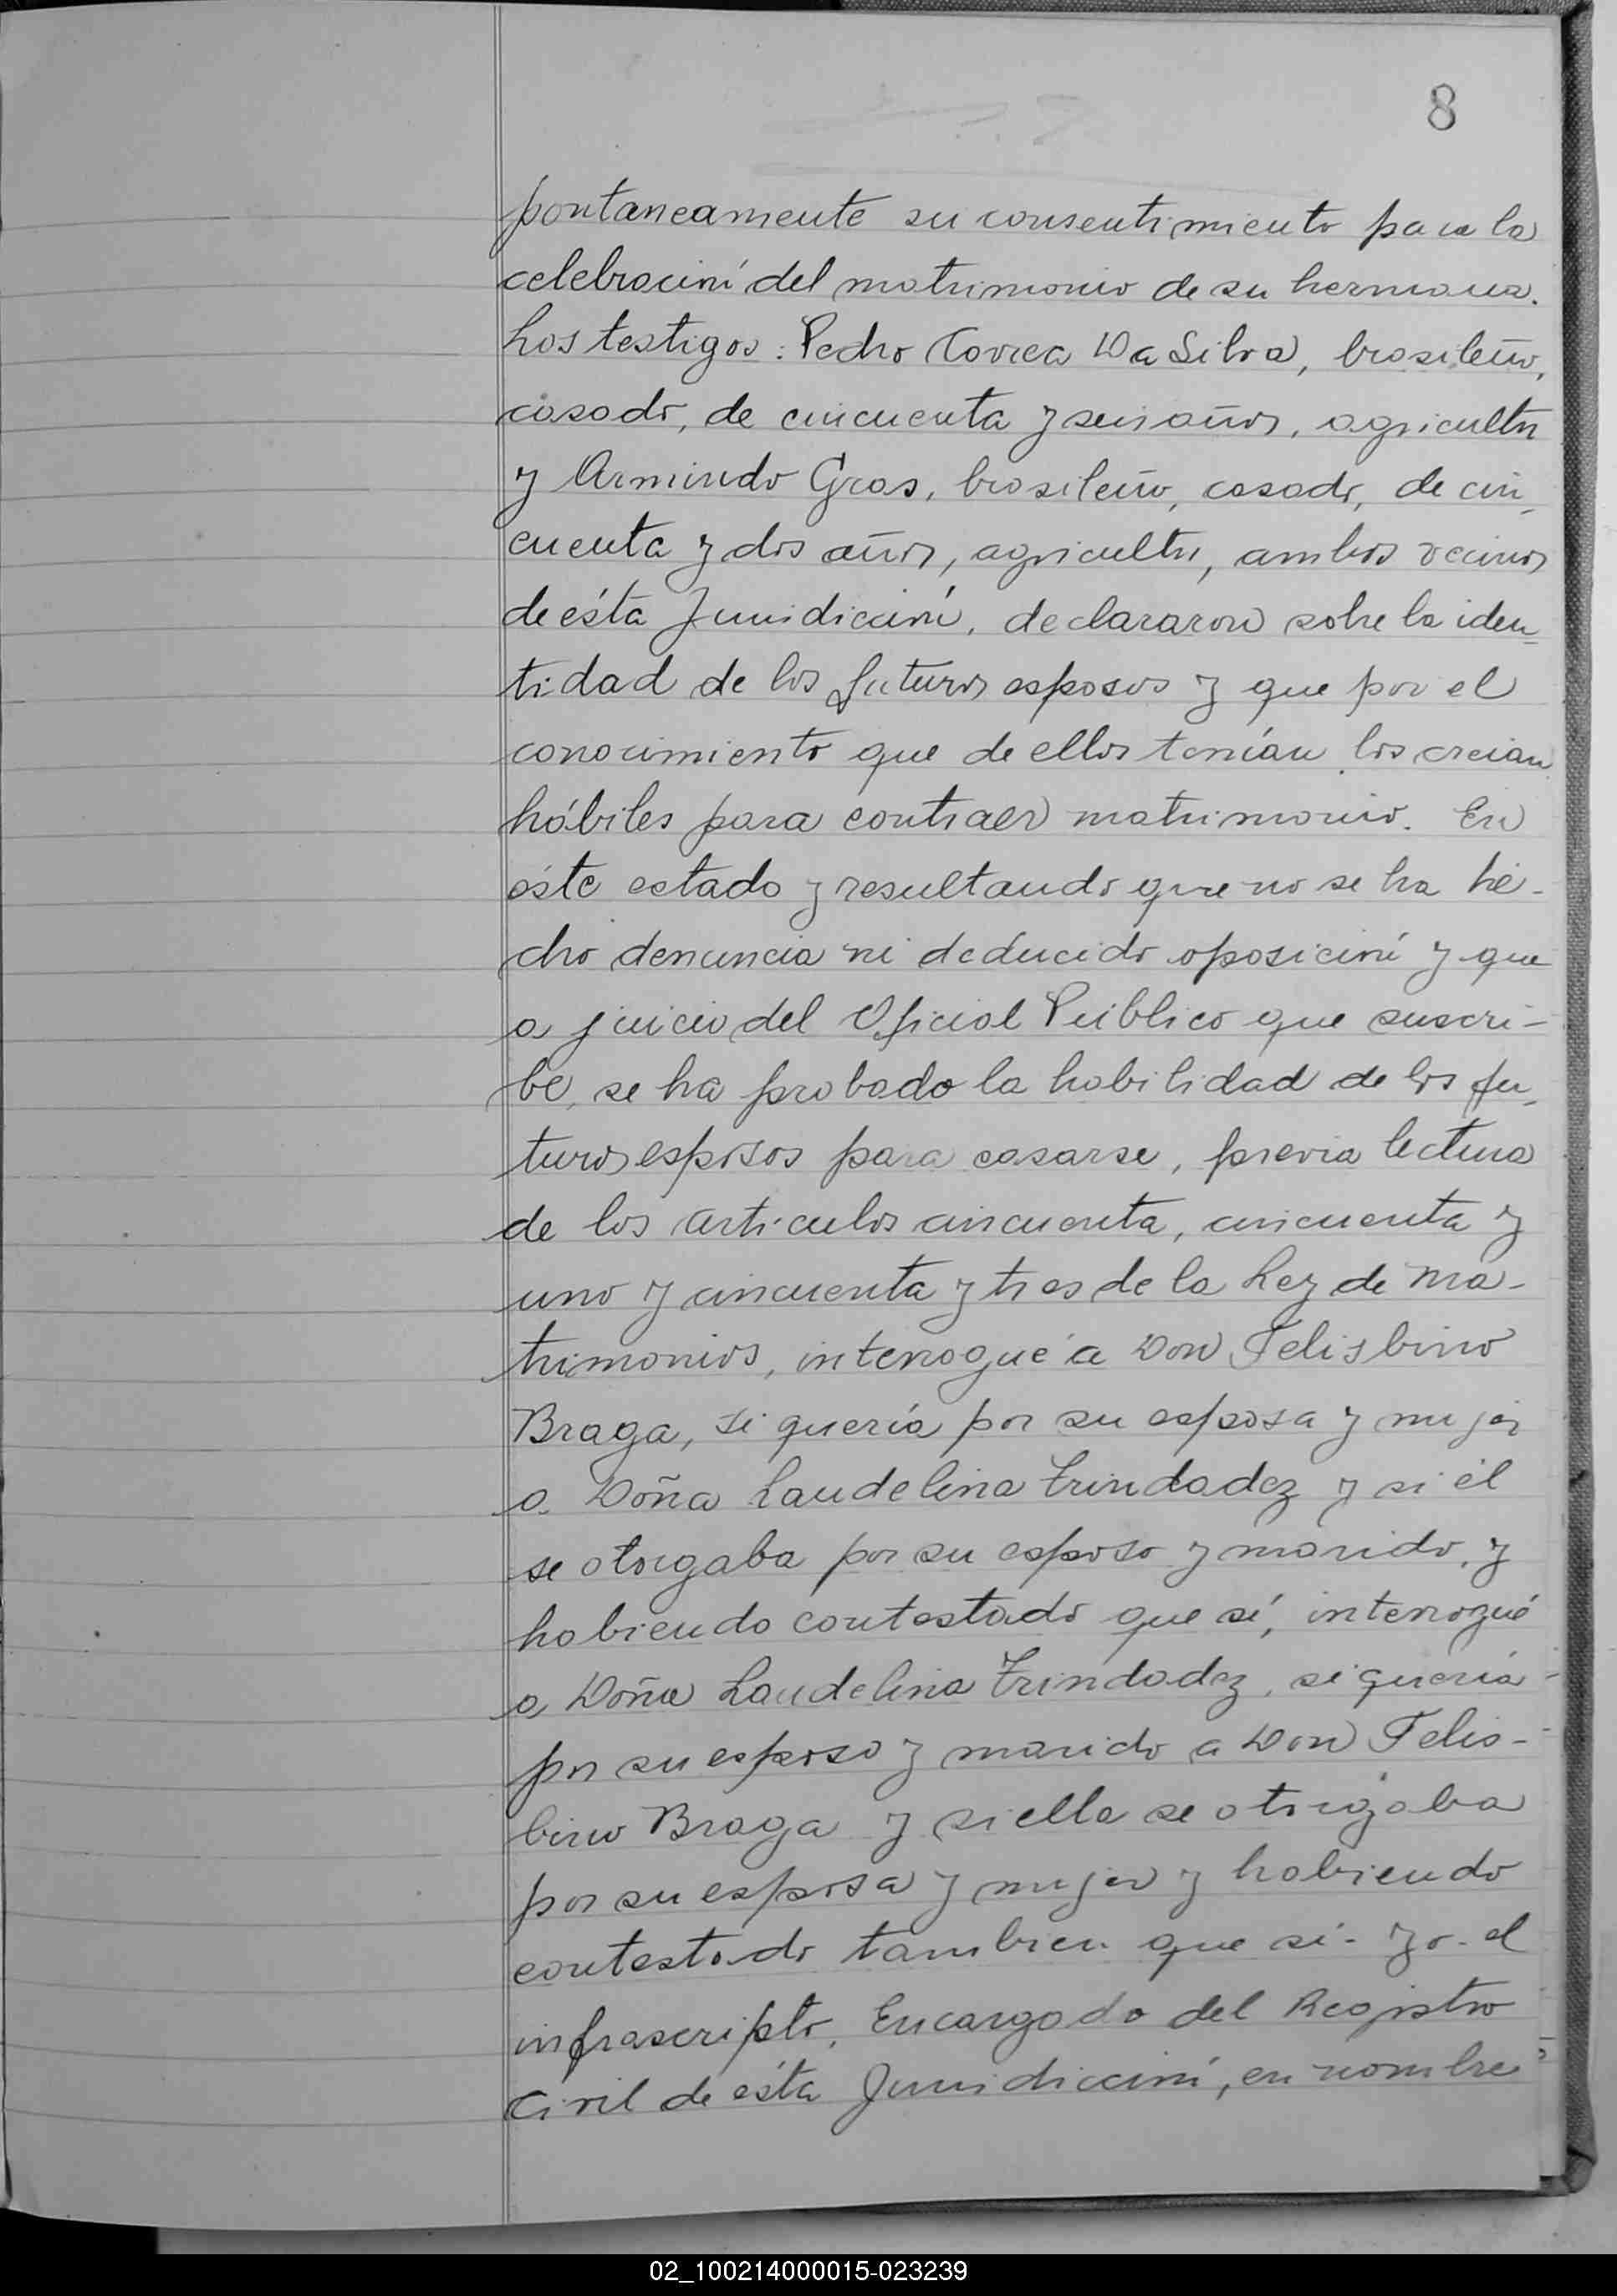 8
pontaneamente su consentimiento para la
celebración del matrimonio de su hermana.
Los testigos: Pedro Correa Da Silva, brasileño,
casado, de cincuenta y seis años, agricultor
y Armindo Gras, brasileño, casado, de cin-
cuenta y dos años, agricultor, ambos vecinos
de ésta Jurisdicción, declararon sobre la iden-
tidad de los futuros esposos y que por el
conocimiento que de ellos tenían los creian
hábiles para contraer matrimonio. En
éste estado y resultando que no se ha he-
cho denuncia ni deducido oposición y que
a juicio del Oficial Público que suscri-
be, se ha probado la habilidad de los fu-
turos esposos para casarse, previa lectura
de los artículos cincuenta, cincuenta y
uno y cincuenta y tres de la Ley de Ma-
trimonios, interrogué a Don Felisbino
Braga, si quería por su esposa y mujer
a Doña Laudelina Trindadez y si él
se otorgaba por su esposo y marido, y
habiendo contestado que sí, interrogué
a Doña Laudelina Trindadez, si quería
por su esposo y marido a Don Felis-
bino Braga y si ella se otorgaba
por su esposa y mujer y habiendo
contestado tambien que sí- yo- el
infrascripto, Encargado del Registro
Civil de ésta Jurisdicción, en nombre
02_100214000015-023239